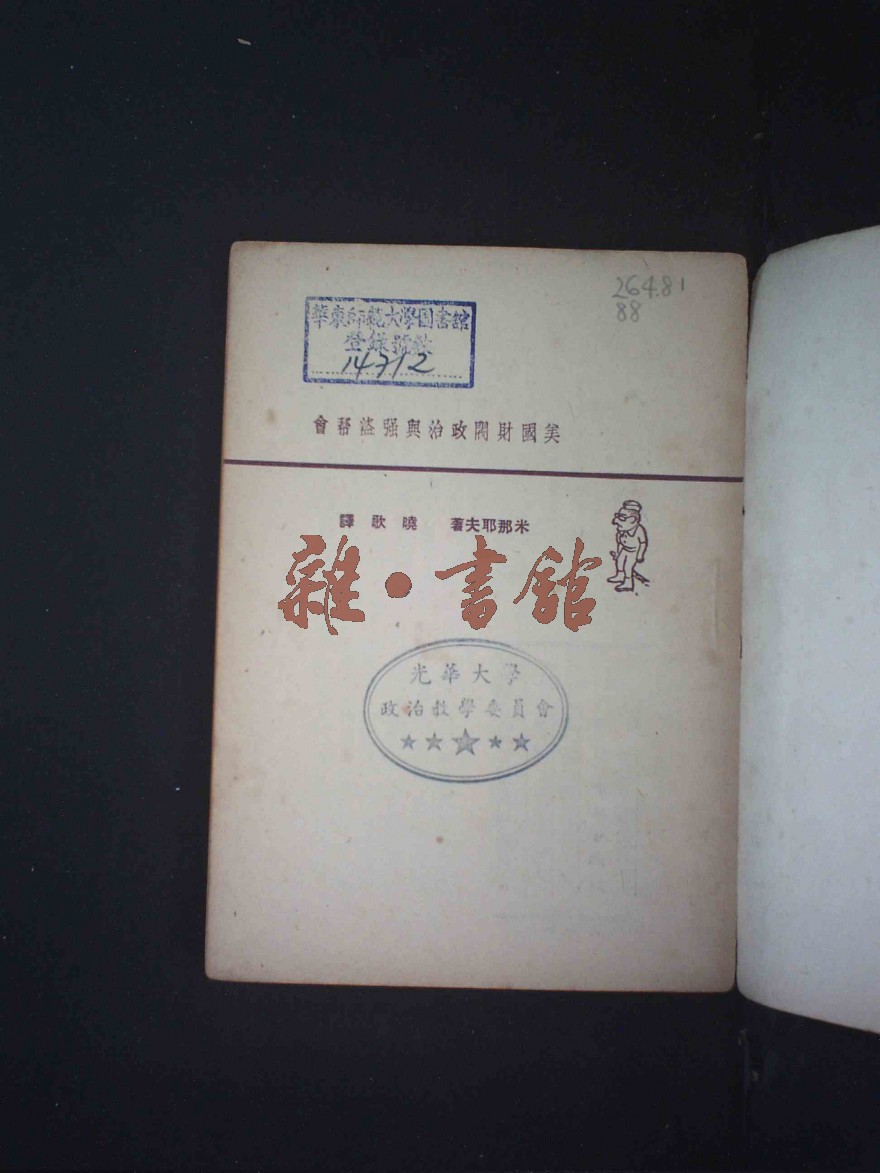 264.81
88
華東師範大學圖書館
登錄號數
14712
美國財閥政治與强盜幫會
米那耶夫著 曉歌譯
雜·書館
光華大學
政治教學委員會